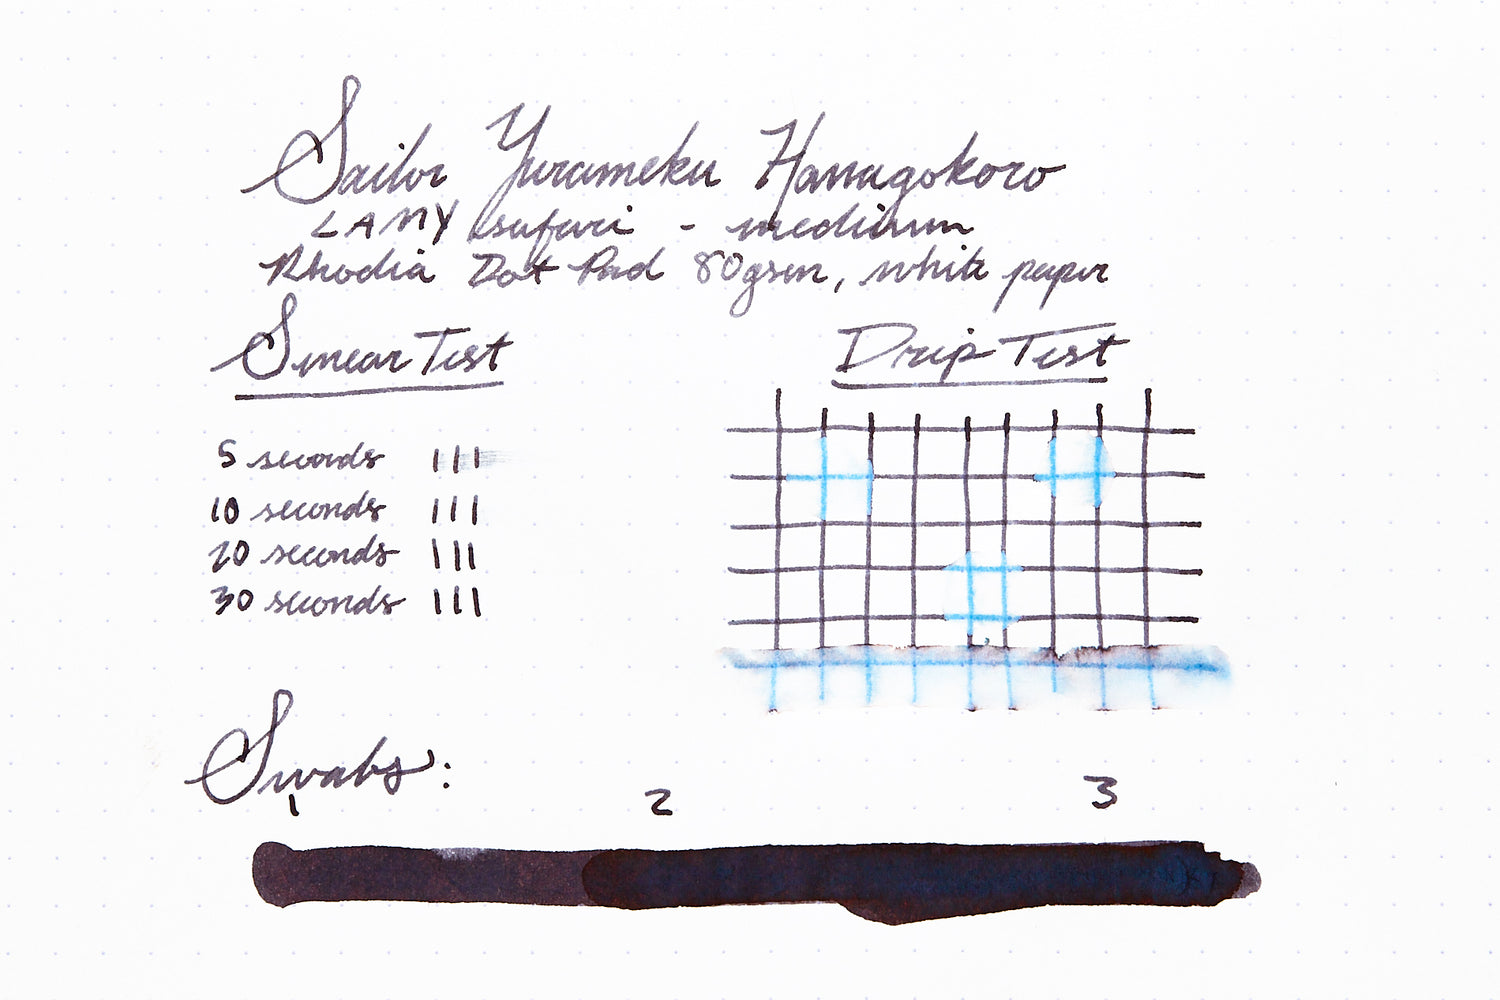 Sailor Yurameku Hanagokoro
LAMY safari - medium
Rhodia Dot Pad 80gsm, white paper
Smear Test
Drip Test
5 seconds
10 seconds
20 seconds
30 seconds
Swabs:
1 2 3